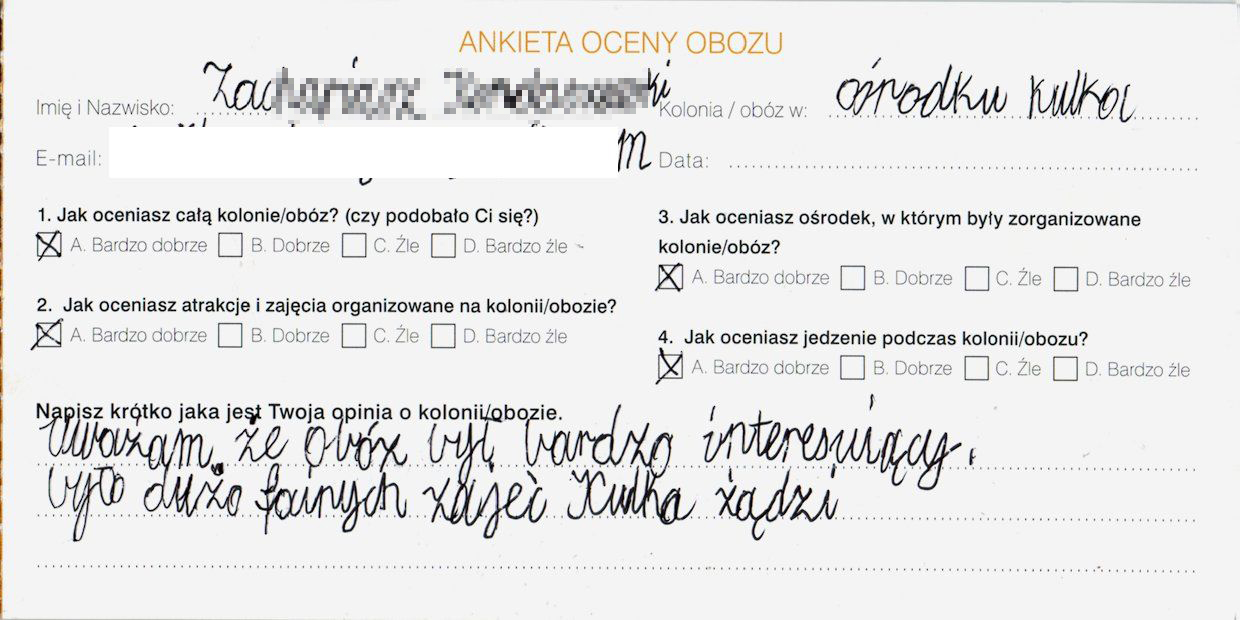 ANKIETA OCENY OBOZU
Imię i Nazwisko: Kolonia / obóz w: ośrodku kulka
E-mail: Data:
1. Jak oceniasz całą kolonie/obóz? (czy podobało Ci się?)
A. Bardzo dobrze B. Dobrze C. Źle D. Bardzo źle
2. Jak oceniasz atrakcje i zajęcia organizowane na kolonii/obozie?
A. Bardzo dobrze B. Dobrze C. Źle D. Bardzo źle
3. Jak oceniasz ośrodek, w którym były zorganizowane
kolonie/obóz?
A. Bardzo dobrze B. Dobrze C. Źle D. Bardzo źle
4. Jak oceniasz jedzenie podczas kolonii/obozu?
A. Bardzo dobrze B. Dobrze C. Źle D. Bardzo źle
Napisz krótko jaka jest Twoja opinia o kolonii/obozie.
Uważam, że obóz był bardzo interesujący.
było dużo fainych zajęć Kulka żądzi